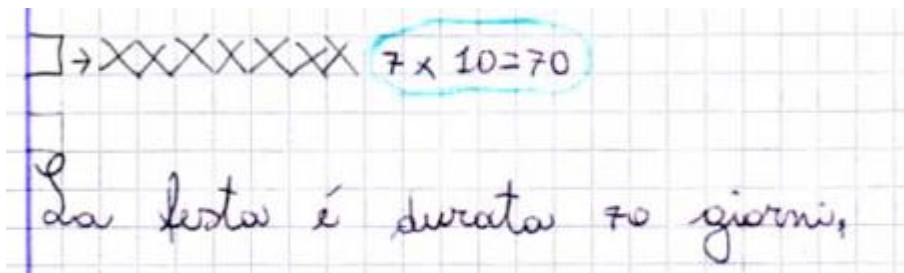 →XXXXXXXX 7 x 10=70
La festa é durata 70 giorni,